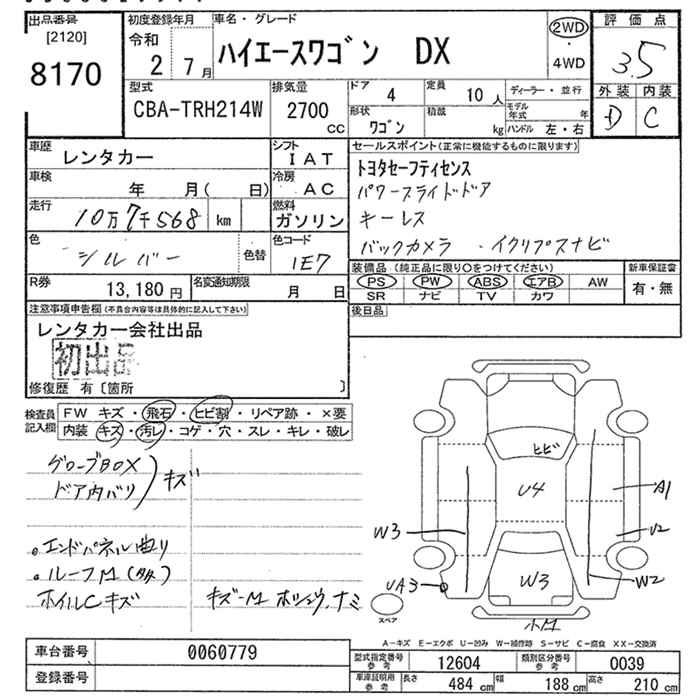 出品番号
[2120]
8170
初度登録年月
令和
2 7月
車名・グレード
ハイエースワゴン DX
2WD
・
4WD
評価点
3.5
外装 内装
D C
型式
CBA-TRH214W
排気量
2700
CC
ドア
4
定員
10 人
ディーラー・並行
形状
ワゴン
積載
kg
モデル年式 年
ハンドル 左・右
車歴
レンタカー
シフト
IAT
車検
年 月( 日)
冷房
AC
走行
10万7千568 km
燃料
ガソリン
色
シルバー
色替
色コード
1E7
R券
13,180 円
名変通知期限
月 日
セールスポイント(正常に機能するものに限ります)
トヨタセーフティセンス
パワースライドドア
キーレス
バックカメラ ・イクリプスナビ
装備品(純正品に限り○をつけてください)
PS PW ABS エアB AW
SR ナビ TV カワ
新車保証書
有・無
後日品
注意事項申告欄(不具合内容等は具体的に記入して下さい)
レンタカー会社出品
初出品
修復歴 有〔箇所 〕
検査員記入欄
FW キズ・飛石・ヒビ割・リペア跡・×要
内装 キズ・汚レ・コゲ・穴・スレ・キレ・破レ
グローブBOX
ドア内バリ
キズ
。エンドパネル曲り
。ルーフM(多数)
ホイルCキズ
キズ-M ホシュウ、ナミ
ヒビ
U4
A1
U2
W3
W2
UA3
W3
小M
スペア
A-キズ E-エクボ U-凹み W-補修跡 S-サビ C-腐食 XX-交換済
車台番号
0060779
登録番号
型式指定番号参考
12604
類別区分番号参考
0039
車庫証明用参考
長さ 484 cm
幅 188 cm
高さ 210 cm